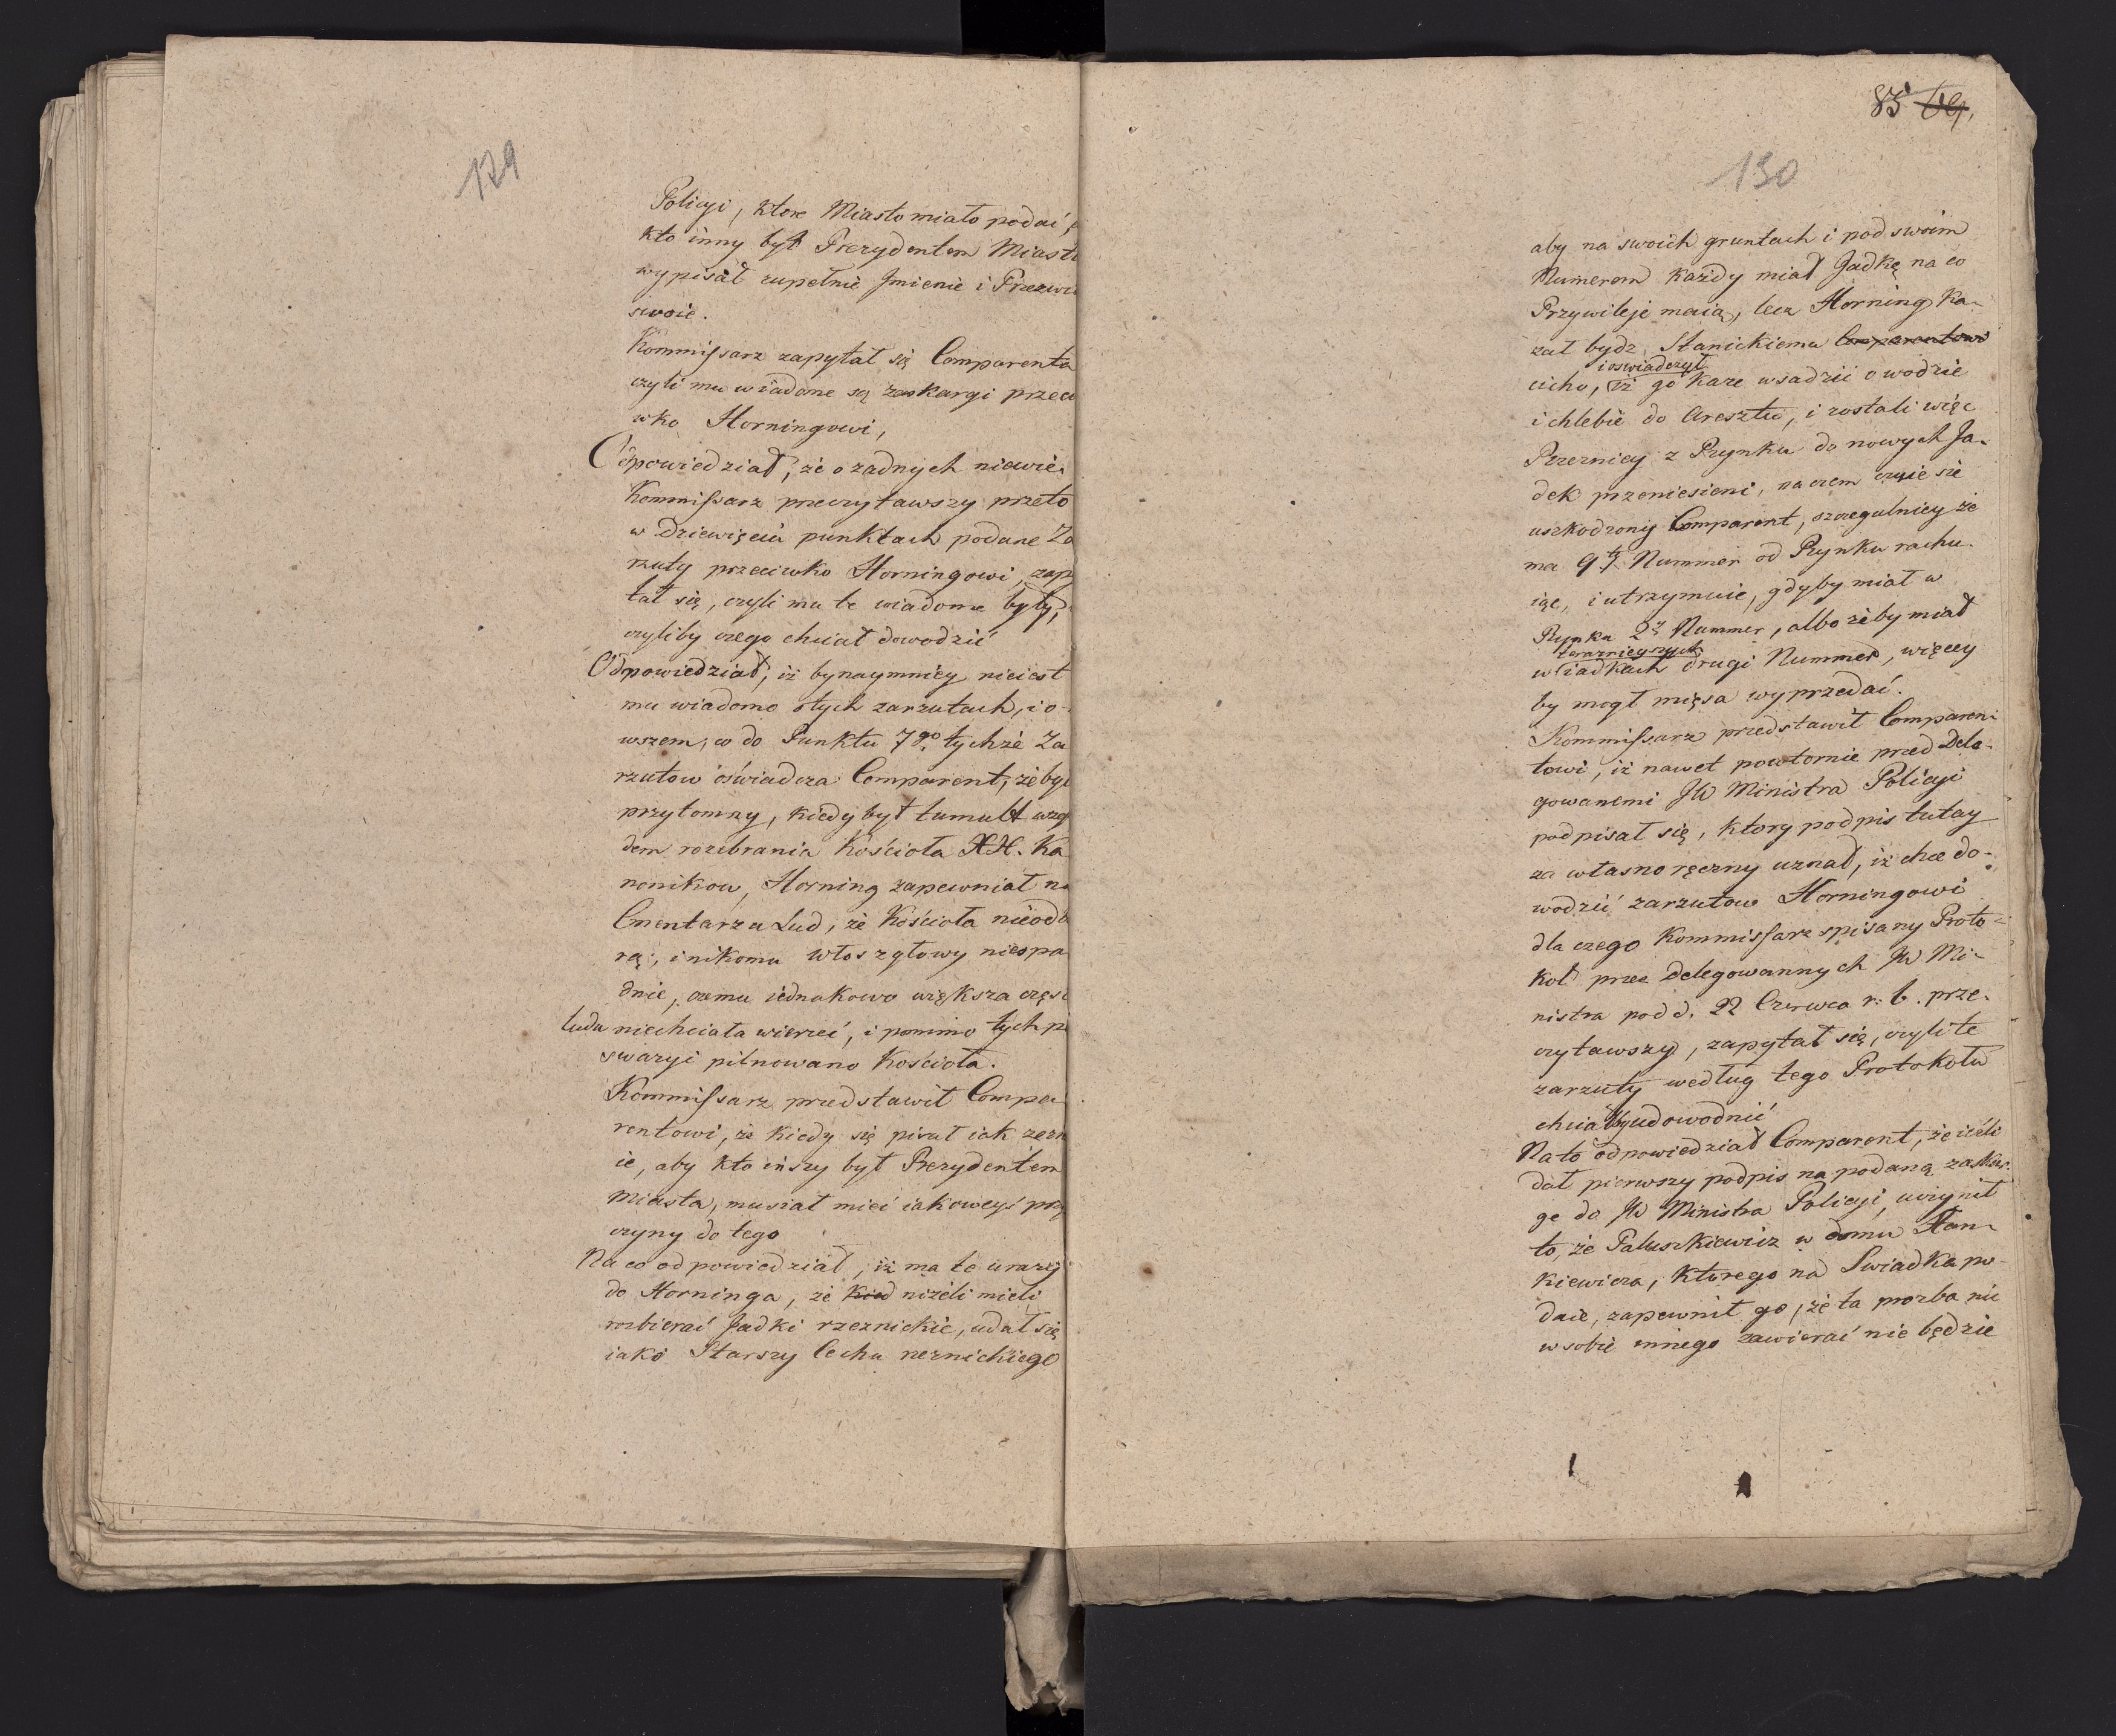 129
Policyi, ktore Miasto miało podać,
kto inny był Prezydentem Miast
wypisał zupełnie Jmienie i Przezwi
swoie.
Kommissarz zapytał się Comparenta
czyli mu wiadome są zaskargi przeci
wko Horningowi,
Odpowiedział, że o żadnych niewie.
Kommissarz przeczytawszy przeto
w Dziewięciu punktach podane Za
rzuty przeciwko Horningowi, zapy
tał się, czyli mu te wiadome były,
czyliby czego chciał dowodzić
Odpowiedział, iż bynaymniey nieiest
mu wiadomo o tych zarzutach, i o-
wszem, co do Punktu 7go tychże Za
rzutow oświadcza Comparent, że był
przytomny, kiedy był tumult wzglę
dem rozebrania Kościoła XX. Ka
nonikow, Horning zapewniał na
Cmentarzu Lud, że Kościoła nieodb
rą, i nikomu włos z głowy niespa
dnie, czemu iednakowo większa częsc
ludu niechciała wierzeć, i pomimo tych pe
swazyi pilnowano Kościoła.
Kommissarz przedstawił Compa
rentowi, że kiedy się pisał iak zezn
ie, aby kto inszy był Prezydentem
Miasta, musiał mieć iakoweyś przy
czyny do tego
Na co odpowiedział, iż ma te urazę
do Horninga, że kied niżeli mieli
rozbierać Jadki rzeznickie, udał się
iako Starszy Cechu rzeznickiego
85 69.
130
aby na swoich gruntach i pod swoim
Numerem każdy miał Jadkę na co
Przywileje maią, lecz Horning ka-
zał bydz Stanickiemu Comparentowi
i oswiadczył
cicho, iż go każe wsadzić o wodzie
i chlebie do Aresztu, i zostali więc
Rzeznicy z Rynku do nowych Ja-
dek przeniesieni, na czem czuie sie
uszkodzony Comparent, szczegulniey że
ma 9ty Nummer od Rynku rachu-
iąc, i utrzymuie, gdyby miał w
Rynku 2gi Nummer, albo żeby miał
terazniejszych
w iadkach drugi Nummer, więcey
by mogł mięsa wyprzedać.
Kommissarz przedstawił Comparen-
towi, iż nawet powtornie przed Dele-
gowanemi JW Ministra Policyi
podpisał się, ktory podpis tutay
za własnoręczny uznał, iż chce do-
wodzić zarzutow Horningowi
dla czego Kommissarz spisany Proto-
koł przez Delegowannych JW Mi-
nistra pod d. 22 Czerwca r: b. prze-
czytawszy, zapytał się, czyli te
zarzuty według tego Protokołu
chciałby udowodnić
Na to odpowiedział Comparent, że iesli
dał pierwszy podpis na podaną zaskar-
gę do JW Ministra Policyi, uczynił
to, że Paluszkiewicz w domu Han-
kiewicza, ktorego na Swiadka po-
daie, zapewnił go, że ta prozba nic
w sobie innego zawierać nie będzie